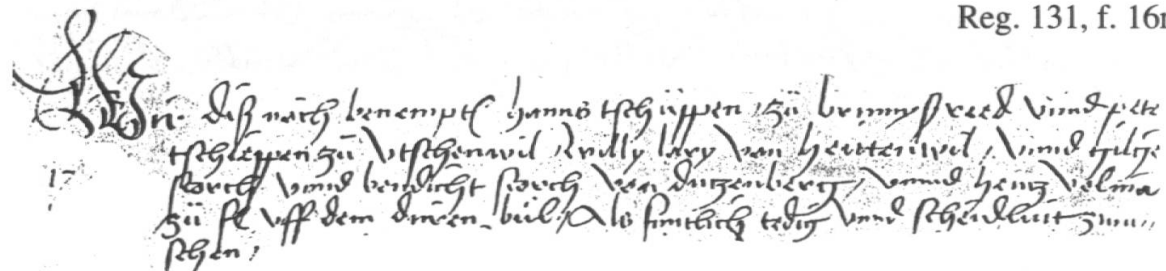 Reg. 131, f. 16r
Wir diß näch benempt hanns tschüppen zü brunnysried vnnd pete
tschleppen zü Vtschenwil, willy lary von heitenwil, vnnd gilge
17 storch vnnd bendicht storch von dützenberg, vnnd heintz
zü vff dem düren bül, Als fruntlich tedig vnnd scheidluit zwu
schen,